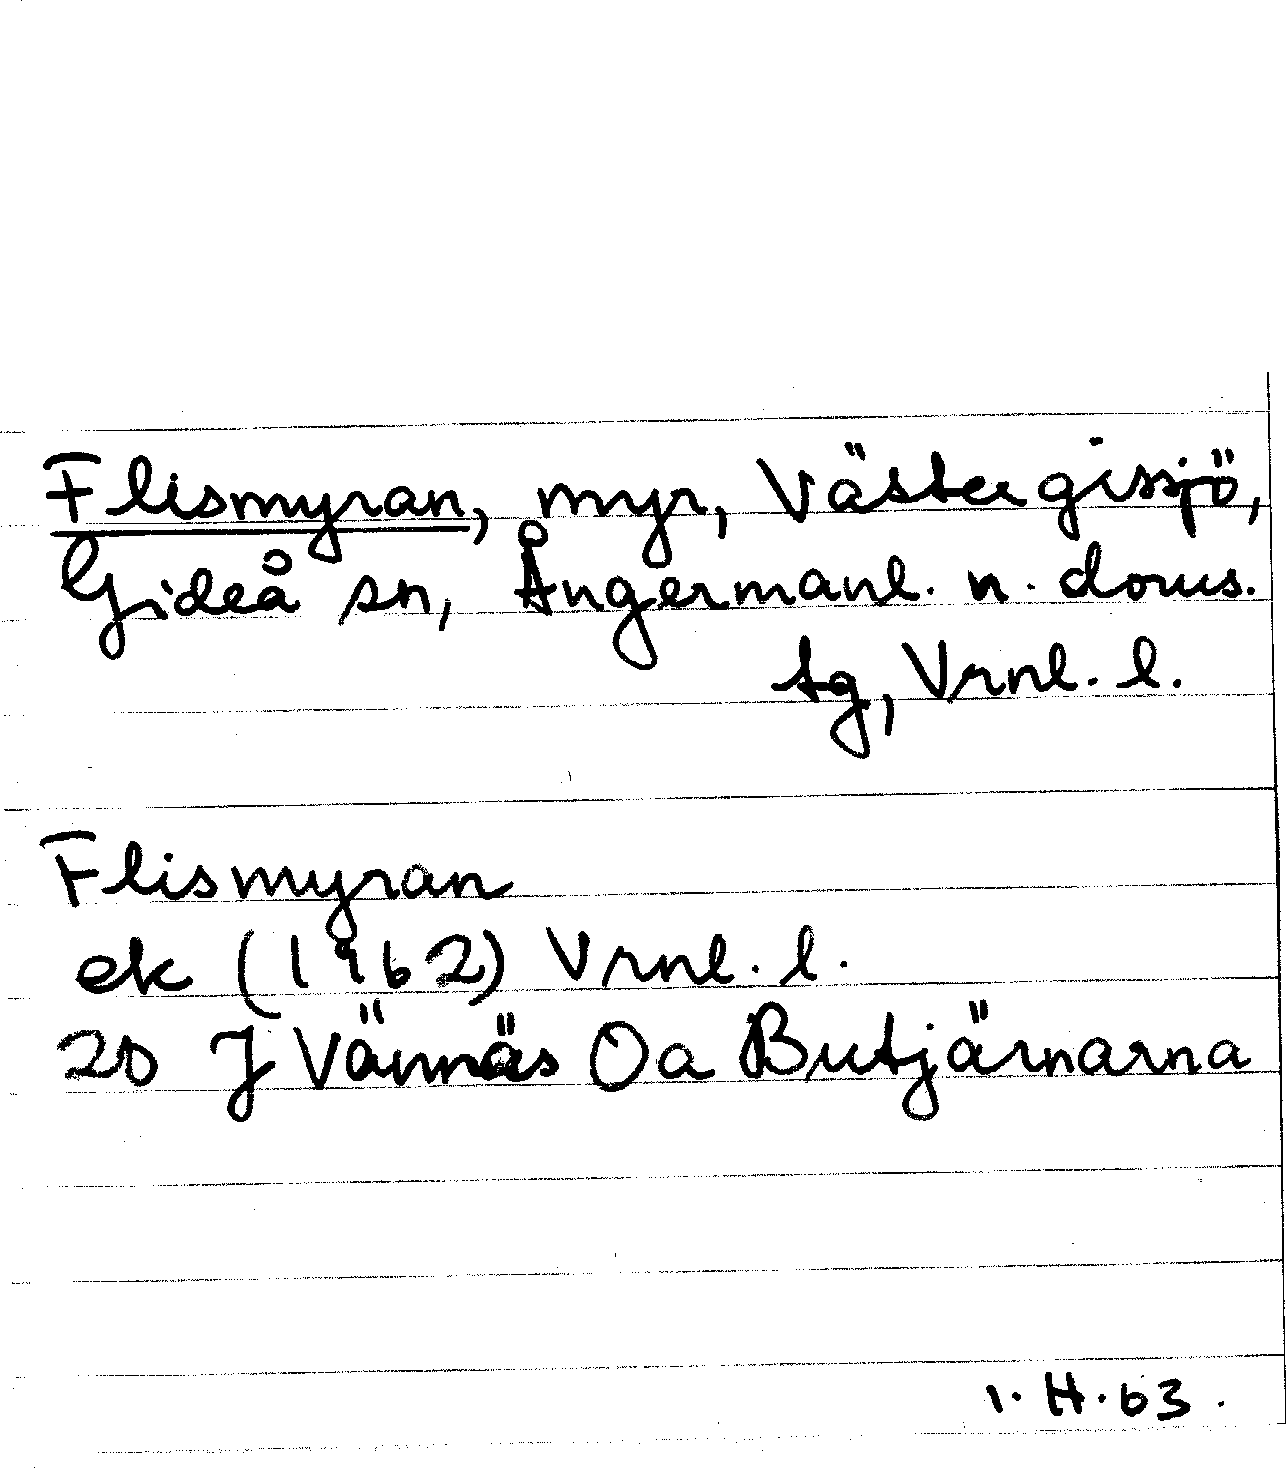 Flismyran, myr, Västergissjö,
Gideå sn, Ångermanl. n. doms.
tg, Vrnl. l.
Flismyran
ek (1962) Vrnl. l.
20 J Vännäs Oa Butjärnarna
1. H. 63.